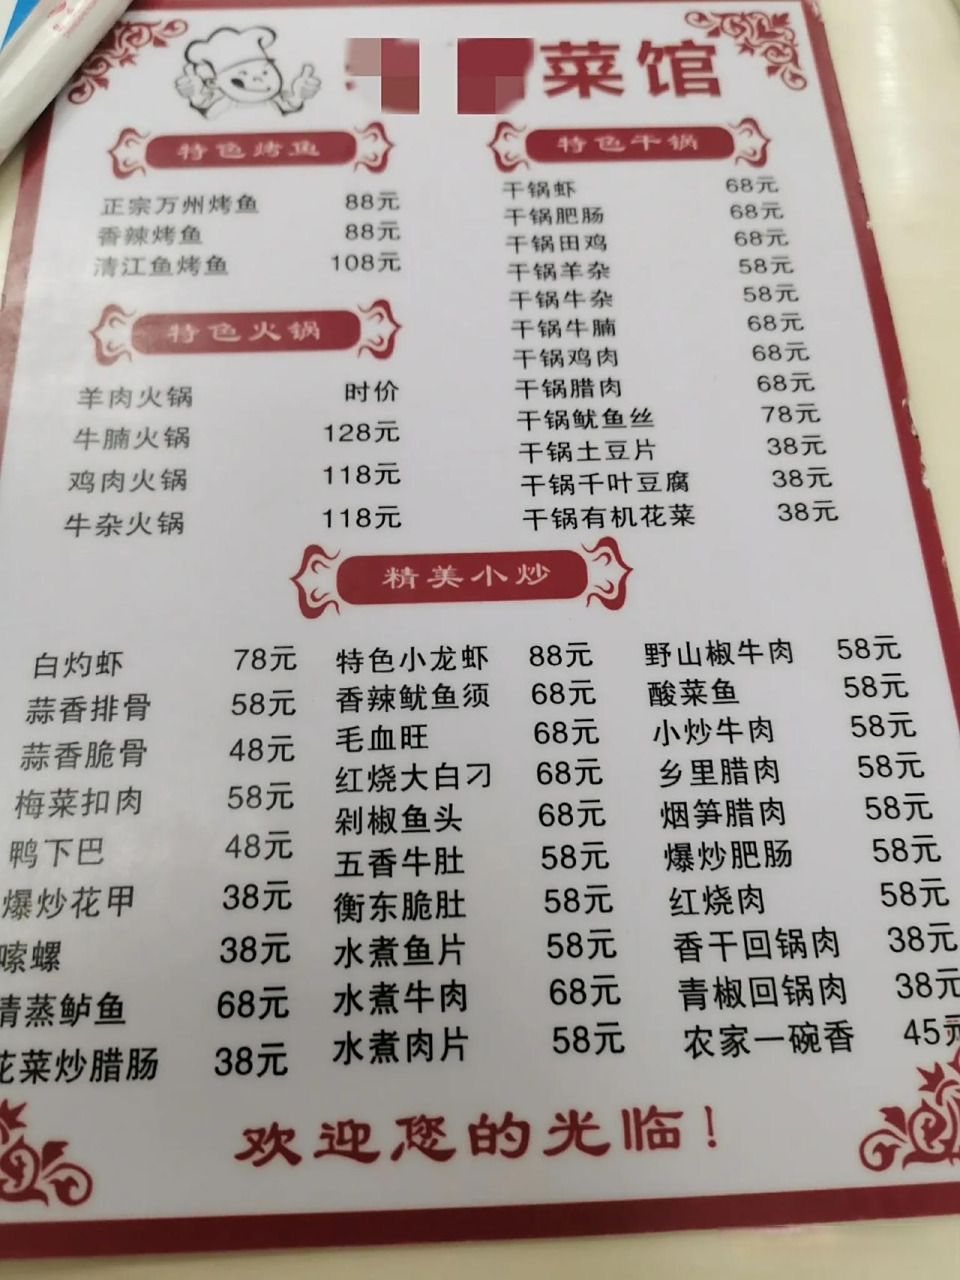 菜馆
特色烤鱼
正宗万州烤鱼 88元
香辣烤鱼 88元
清江鱼烤鱼 108元
特色火锅
羊肉火锅 时价
牛腩火锅 128元
鸡肉火锅 118元
牛杂火锅 118元
特色干锅
干锅虾 68元
干锅肥肠 68元
干锅田鸡 68元
干锅羊杂 58元
干锅牛杂 58元
干锅牛腩 68元
干锅鸡肉 68元
干锅腊肉 68元
干锅鱿鱼丝 78元
干锅土豆片 38元
干锅千叶豆腐 38元
干锅有机花菜 38元
精美小炒
白灼虾 78元
蒜香排骨 58元
蒜香脆骨 48元
梅菜扣肉 58元
鸭下巴 48元
爆炒花甲 38元
嗦螺 38元
清蒸鲈鱼 68元
花菜炒腊肠 38元
特色小龙虾 88元
香辣鱿鱼须 68元
毛血旺 68元
红烧大白刁 68元
剁椒鱼头 68元
五香牛肚 58元
衡东脆肚 58元
水煮鱼片 58元
水煮牛肉 68元
水煮肉片 58元
野山椒牛肉 58元
酸菜鱼 58元
小炒牛肉 58元
乡里腊肉 58元
烟笋腊肉 58元
爆炒肥肠 58元
红烧肉 58元
香干回锅肉 38元
青椒回锅肉 38元
农家一碗香 45元
欢迎您的光临！